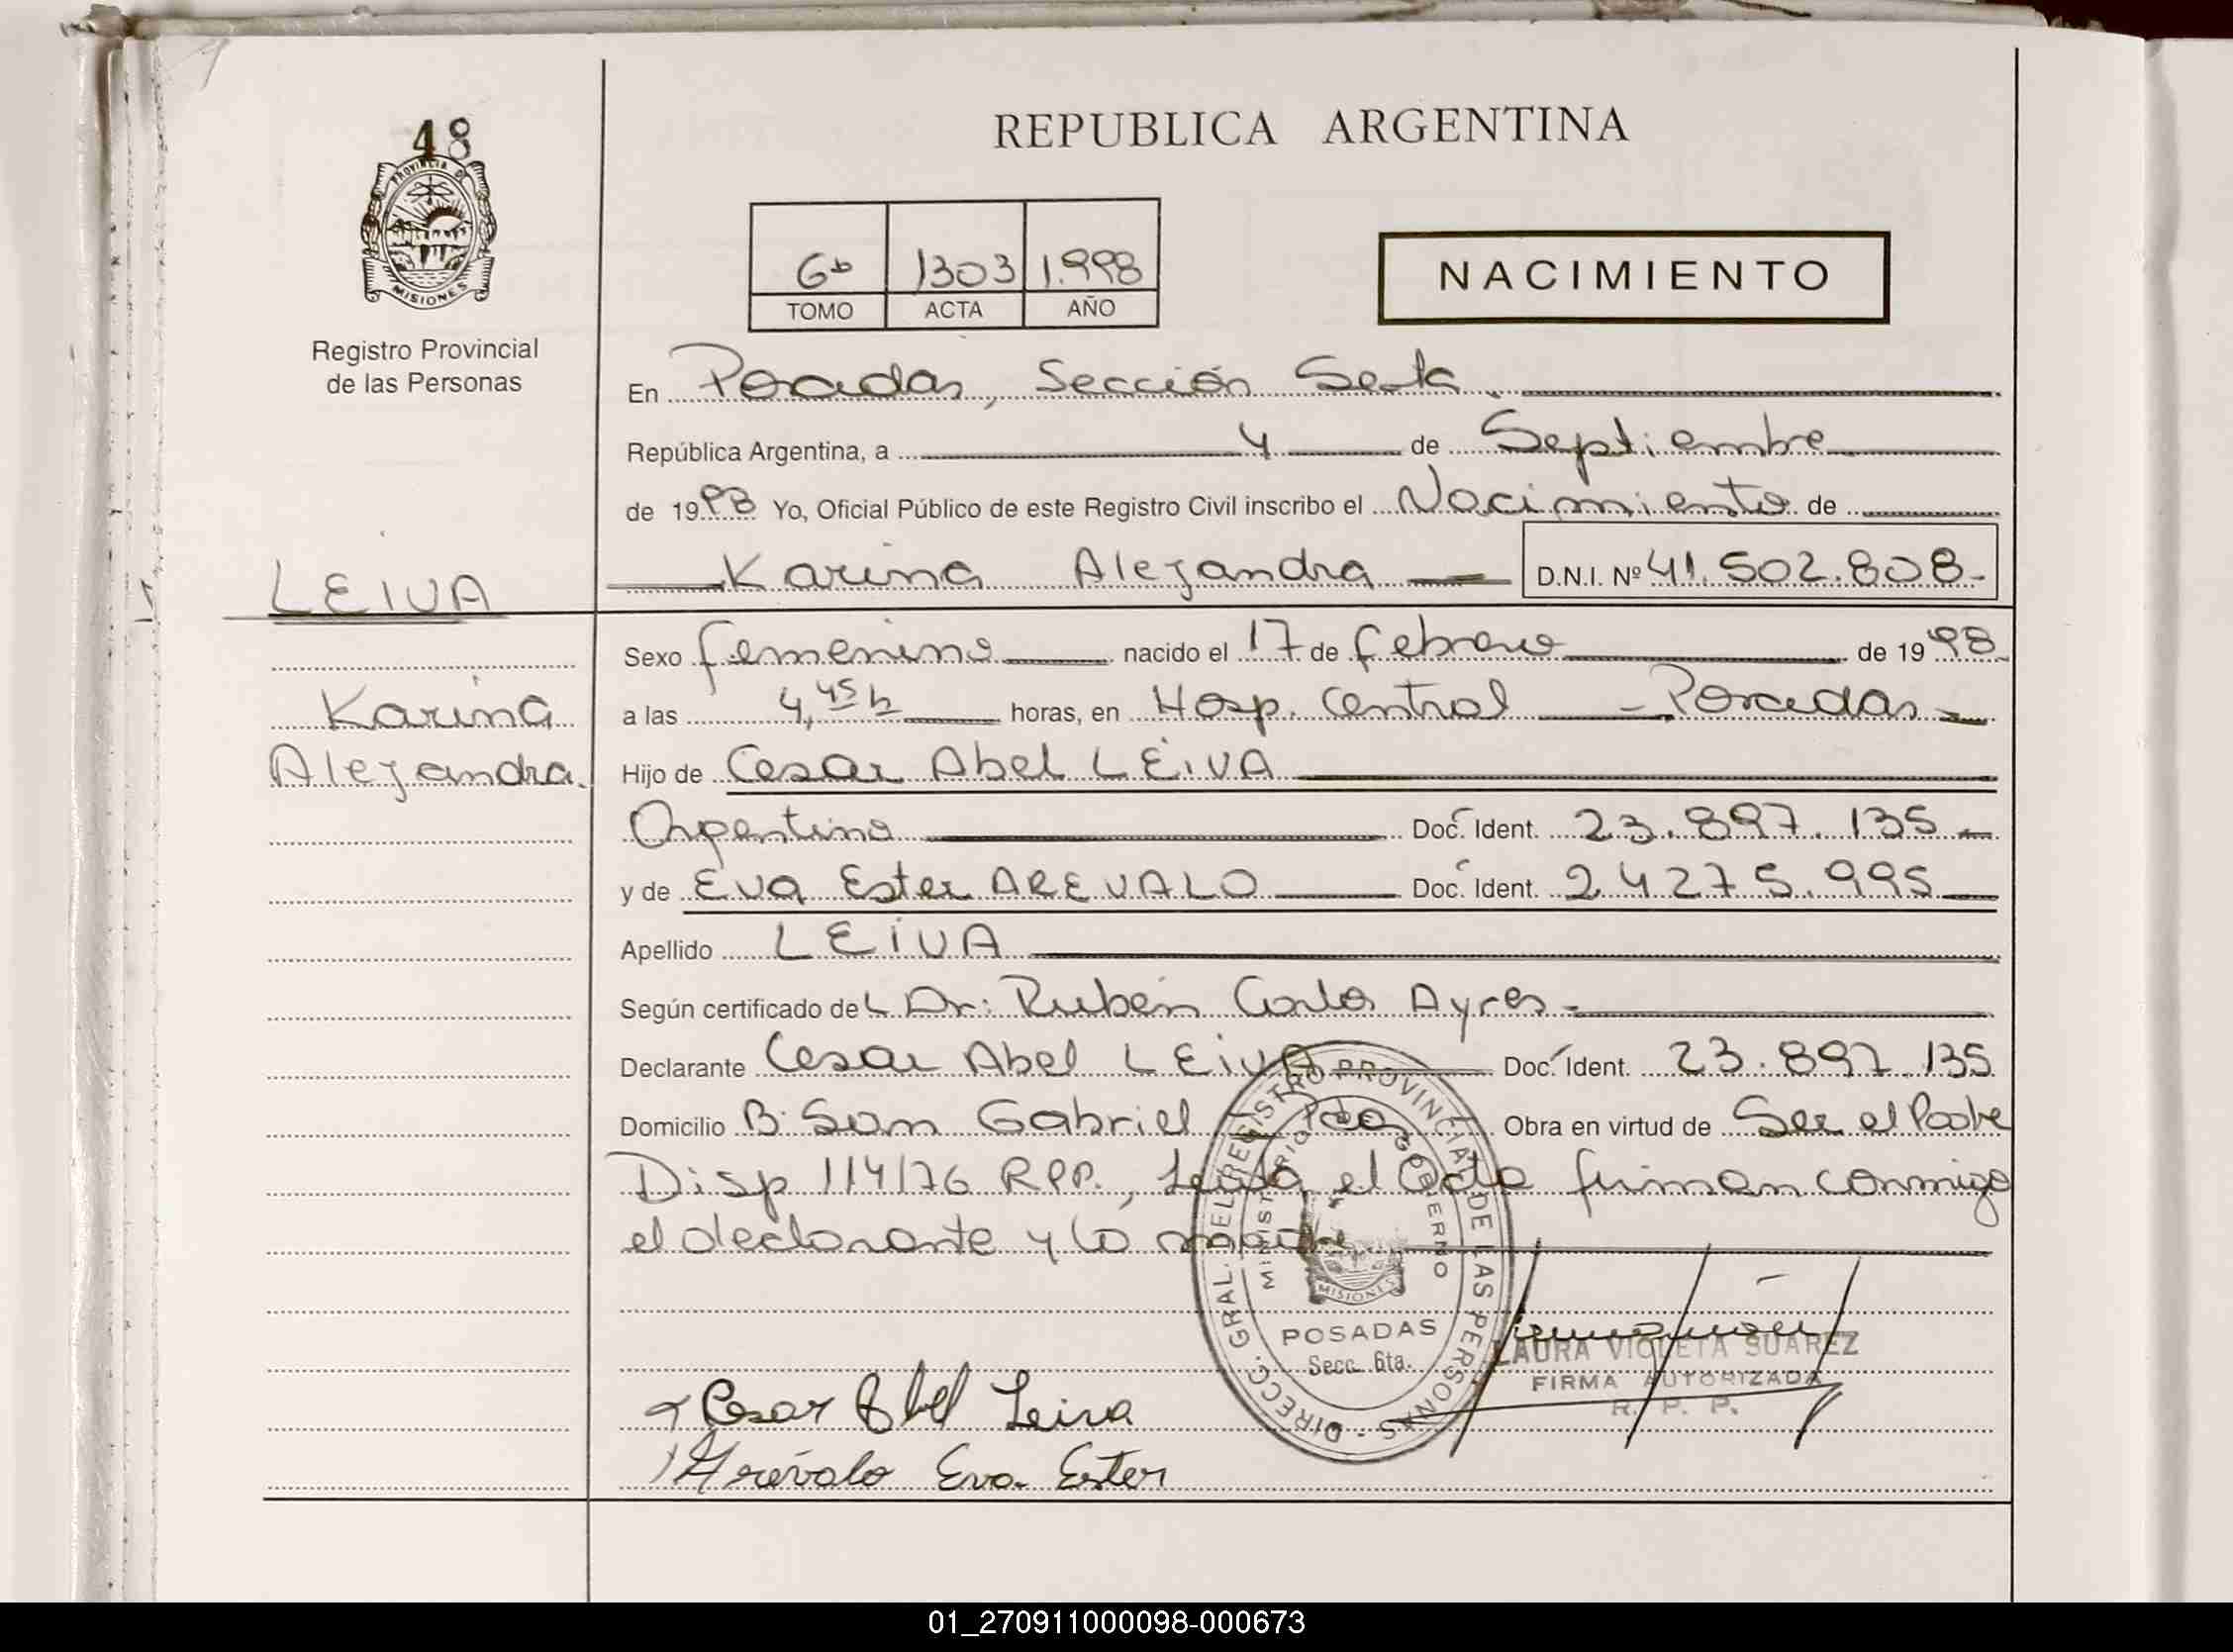 48
PROVINCIA D
MISIONES
Registro Provincial
de las Personas
REPUBLICA ARGENTINA
6to 1303 1.998
TOMO ACTA AÑO
NACIMIENTO
En Posadas, Sección Sexta
República Argentina, a 4 de Septiembre
de 1998 Yo, Oficial Público de este Registro Civil inscribo el Nacimiento de
Karina Alejandra D.N.I. Nº 41.502.808.-
LEIVA
Sexo femenino nacido el 17 de febrero de 1998
Karina
a las 4,45 h horas, en Hosp. Central - Posadas -
Alejandra.
Hijo de Cesar Abel LEIVA
Argentino Doc. Ident. 23.897.135
y de Eva Ester AREVALO Doc. Ident. 24275.995
Apellido LEIVA
Según certificado del Dr: Ruben Carlos Ayres.-
Declarante Cesar Abel LEIVA Doc. Ident. 23.897.135
Domicilio B: San Gabriel - Pdas. Obra en virtud de Ser el Padre
Disp 114/76 RPP., Leida el acta firman conmigo
el declarante y la madre
DIRECC. GRAL. DEL REGISTRO PROVINCIAL DE LAS PERSONAS -
MINISTERIO GOBIERNO
MISIONES
POSADAS
Secc. 6ta.
LAURA VIOLETA SUAREZ
FIRMA AUTORIZADA
R. P. P.
Cesar Abel Leiva
Arévalo Eva Ester
01_270911000098-000673